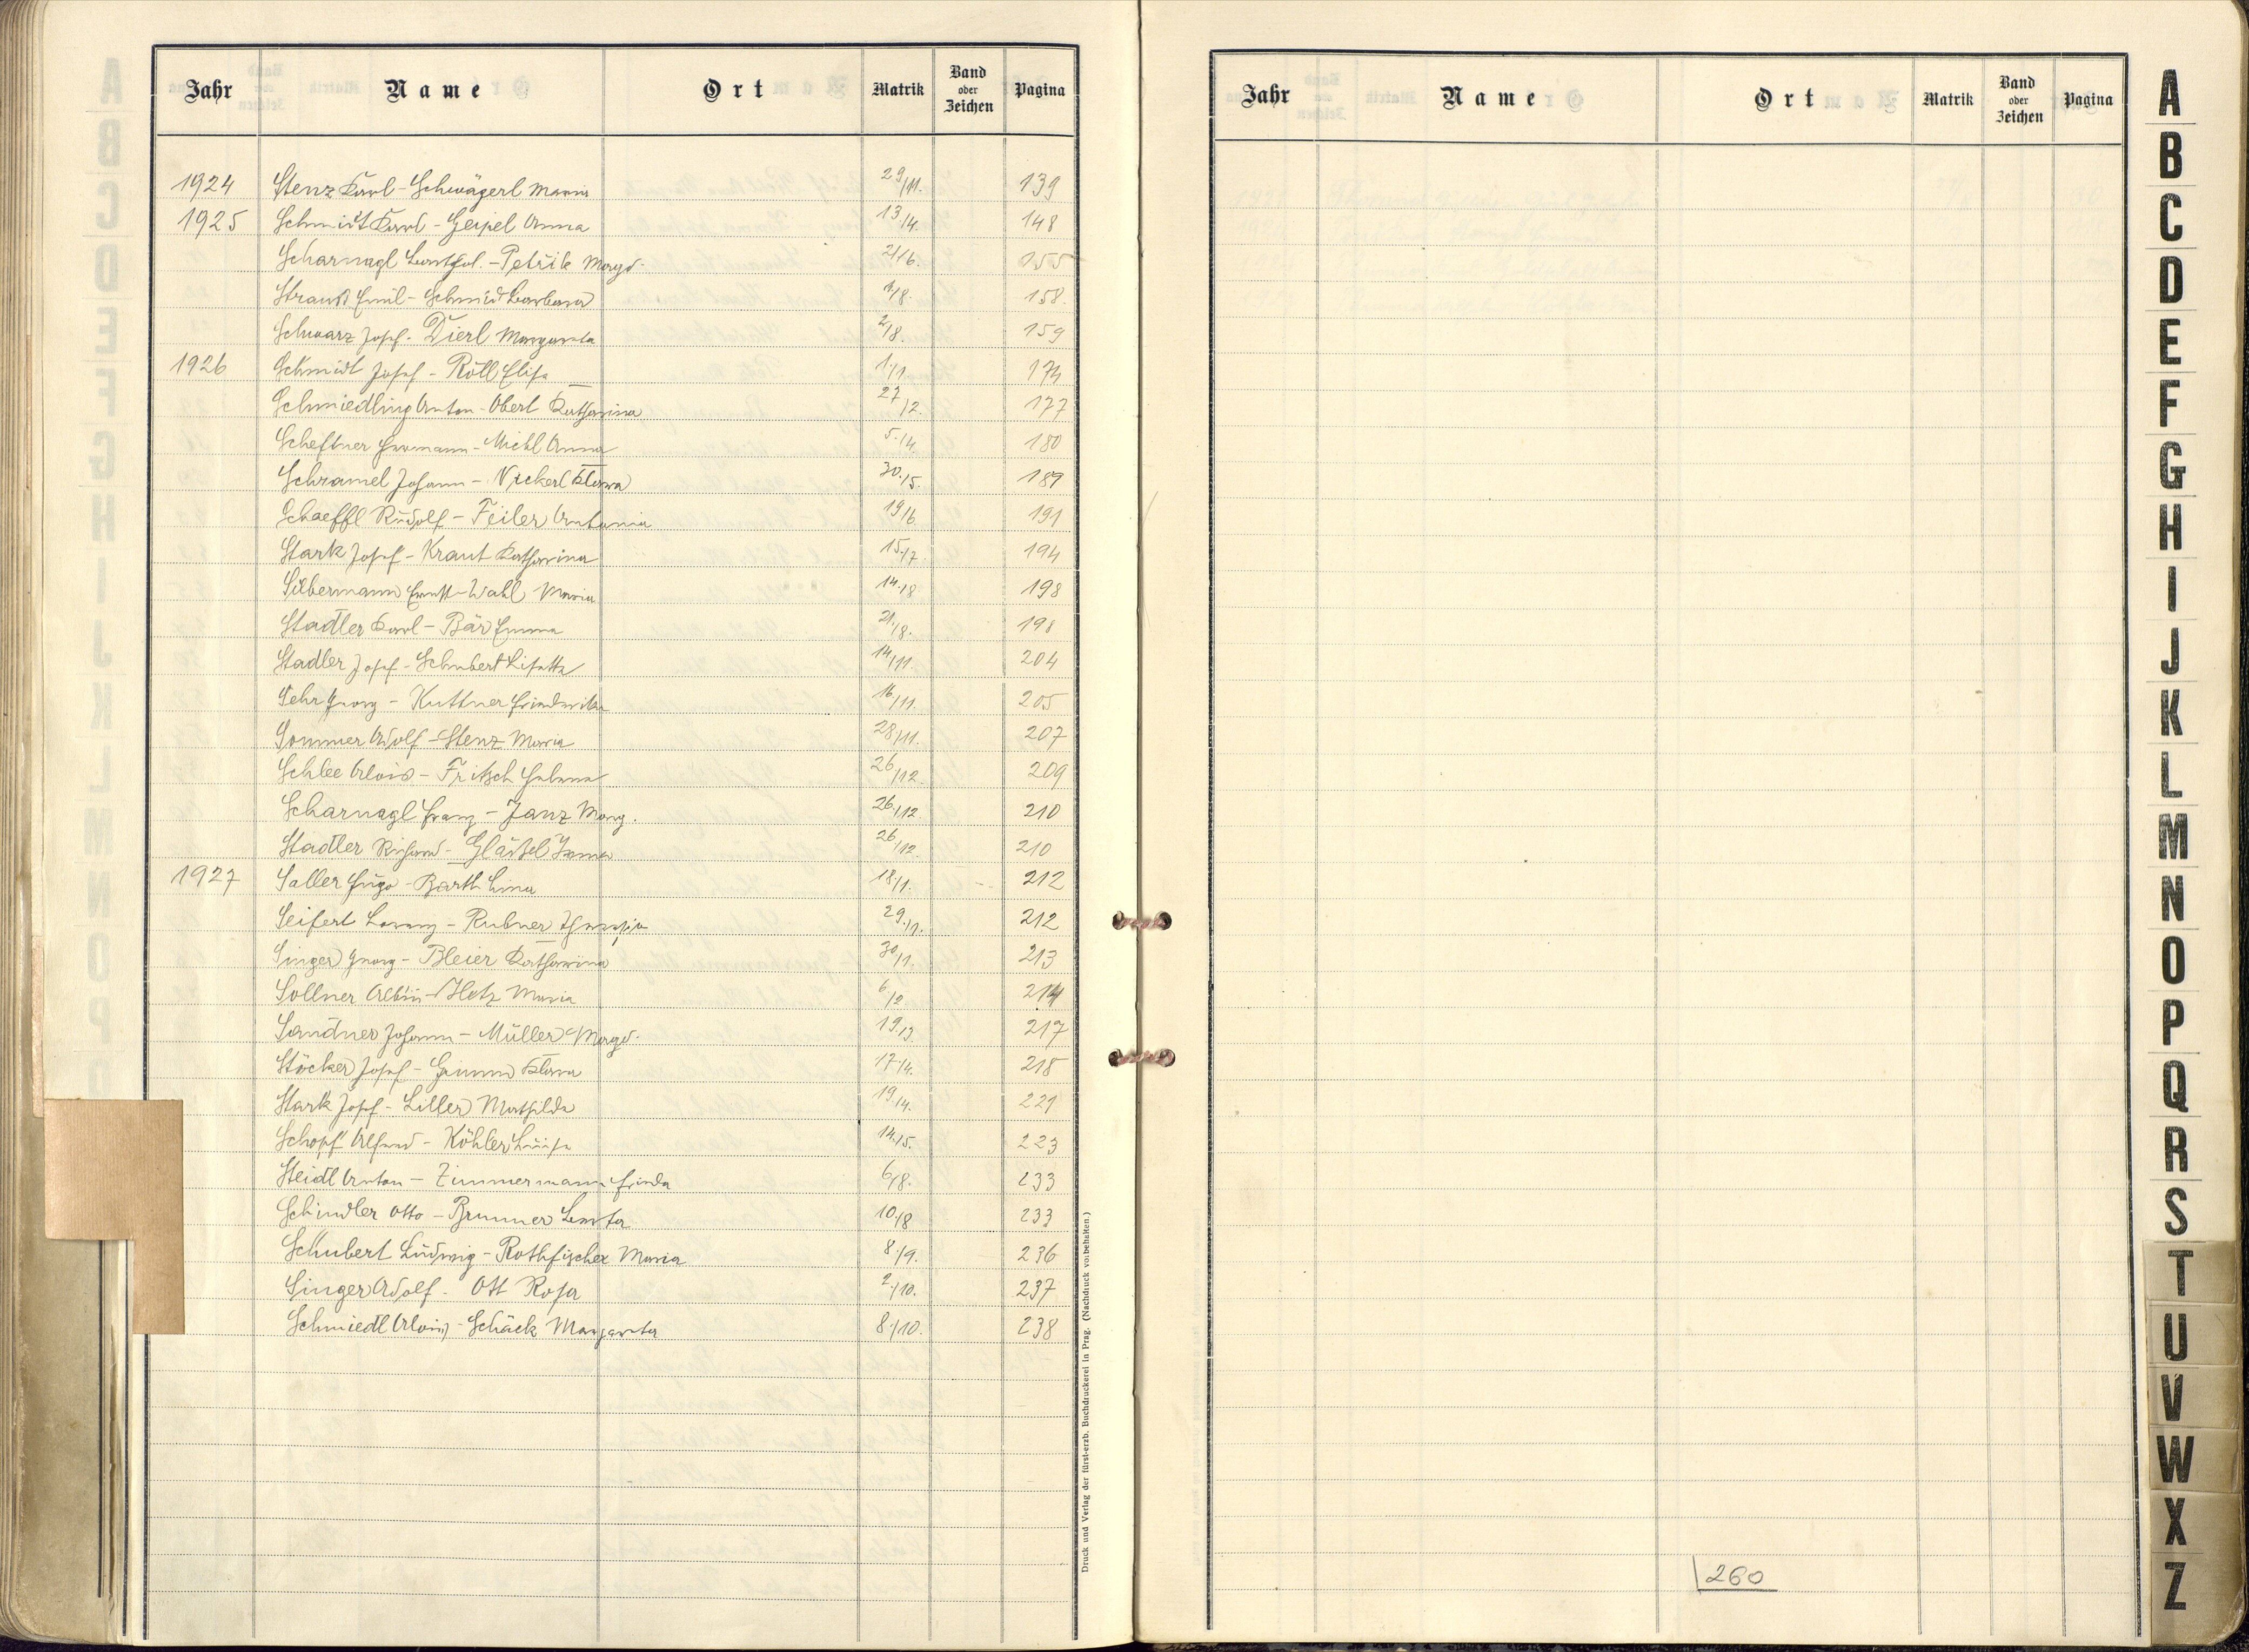 Jahr Name Ort Matrik Band oder Zeichen Pagina
1924 Stenz Karl - Schwägerl Maria 29/11. 139
1925 Schmidt Karl - Geipel Anna 13/4. 148
Scharnagl - Petrik Magd. 21/6. 155
Strauß Emil - Schmid Barbara 1/8. 158.
Schwarz Josef - Dierl Margareta 2/8. 159
1926 Schmidt Josef - Röll Elisa 1/1. 174
Schmiedling Anton - Oberl Katharina 27/2. 177
Scheftner Hermann - Michl Anna 5./4. 180
Schramel Johann - Nickerl Klara 30./5. 189
Schaeffl Rudolf - Feiler Antonia 19/6 191
Stark Josef - Kraut Katharina 15./7 194
Silbermann Ernst - Wahl Maria 14./8 198
Stadler Karl - Bär Emma 21./8. 198
Stadler Josef - Schubert Lisette 14/11. 204
Sehr Georg - Kuttner Friederike 16/11. 205
Sommer Adolf - Stenz Maria 28/11. 207
Schlee Alois - Fritsch Helene 26/12. 209
Scharnagl Franz - Janz Marg. 26./12 210
Stadler Richard - Gläßel Irma 26/12. 210
1927 Saller Hugo - Barth Lina 18/1. 212
Seifert Lorenz - Rubner Theresia 29./1. 212
Singer Georg - Bleier Katharina 30/1. 213
Sollner Albin - Hetz Maria 6/2 214
Sandner Johann - Müller Magd. 19./3. 217
Stöcker Josef - Grimm Klara 17./4. 218
Stark Josef - Liller Mathilde 19./4. 221
Schopf Alfred - Köhler Luise 14./5. 223
Steidl Anton - Zimmermann Frieda 6/8. 233
Schindler Otto - Brunner Berta 10./8 233
Schubert Ludwig - Rothfischer Maria 8./9. 236
Singer Adolf - Ott Rosa 2./10. 237
Schmiedl Alois - Schäck Margareta 8./10. 238
Druck und Verlag der fürst-erzb. Buchdruckerei in Prag. (Nachdruck vorbehalten.)
Jahr Name Ort Matrik Band oder Zeichen Pagina
260
A
B
C
D
E
F
G
H
I
J
K
L
M
N
O
P
Q
R
S
T
U
V
W
X
Z